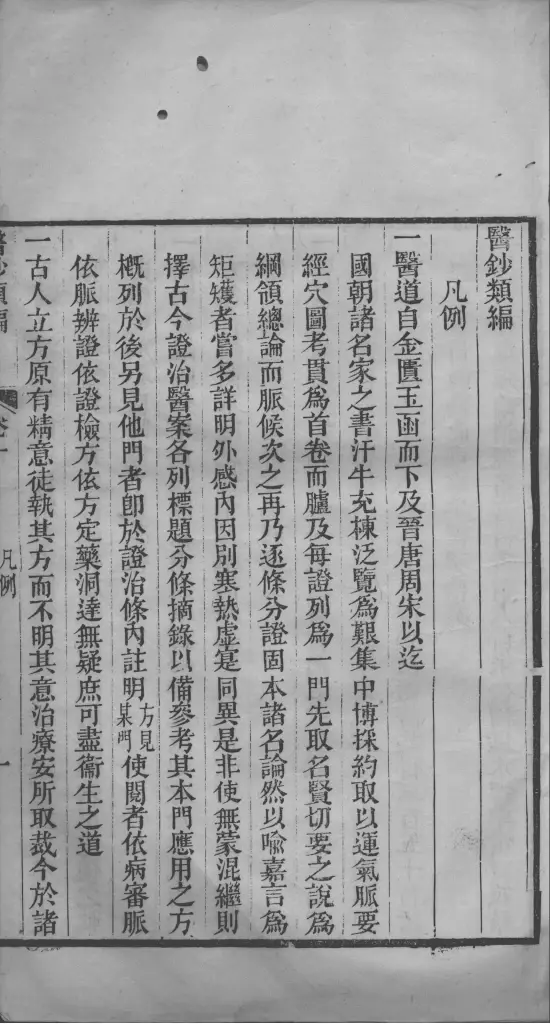 醫鈔類編
凡例
一醫道自金匱玉函而下及晉唐周宋以迄
國朝諸名家之書汗牛充棟泛覽爲艱集中博採約取以運氣脈要
經穴圖考貫爲首卷而臚及每證列爲一門先取名賢切要之說爲
綱領總論而脈候次之再乃逐條分證固本諸名論然以喻嘉言爲
矩矱者嘗多詳明外感內因別寒熱虛寔同異是非使無蒙混繼則
擇古今證治醫案各列標題分條摘錄以備參考其本門應用之方
概列於後另見他門者卽於證治條內註明方見某門使閱者依病審脈
依脈辨證依證檢方依方定藥洞達無疑庶可盡衞生之道
一古人立方原有精意徒執其方而不明其意治療安所取裁今於諸
醫鈔類編
卷一
凡例
一